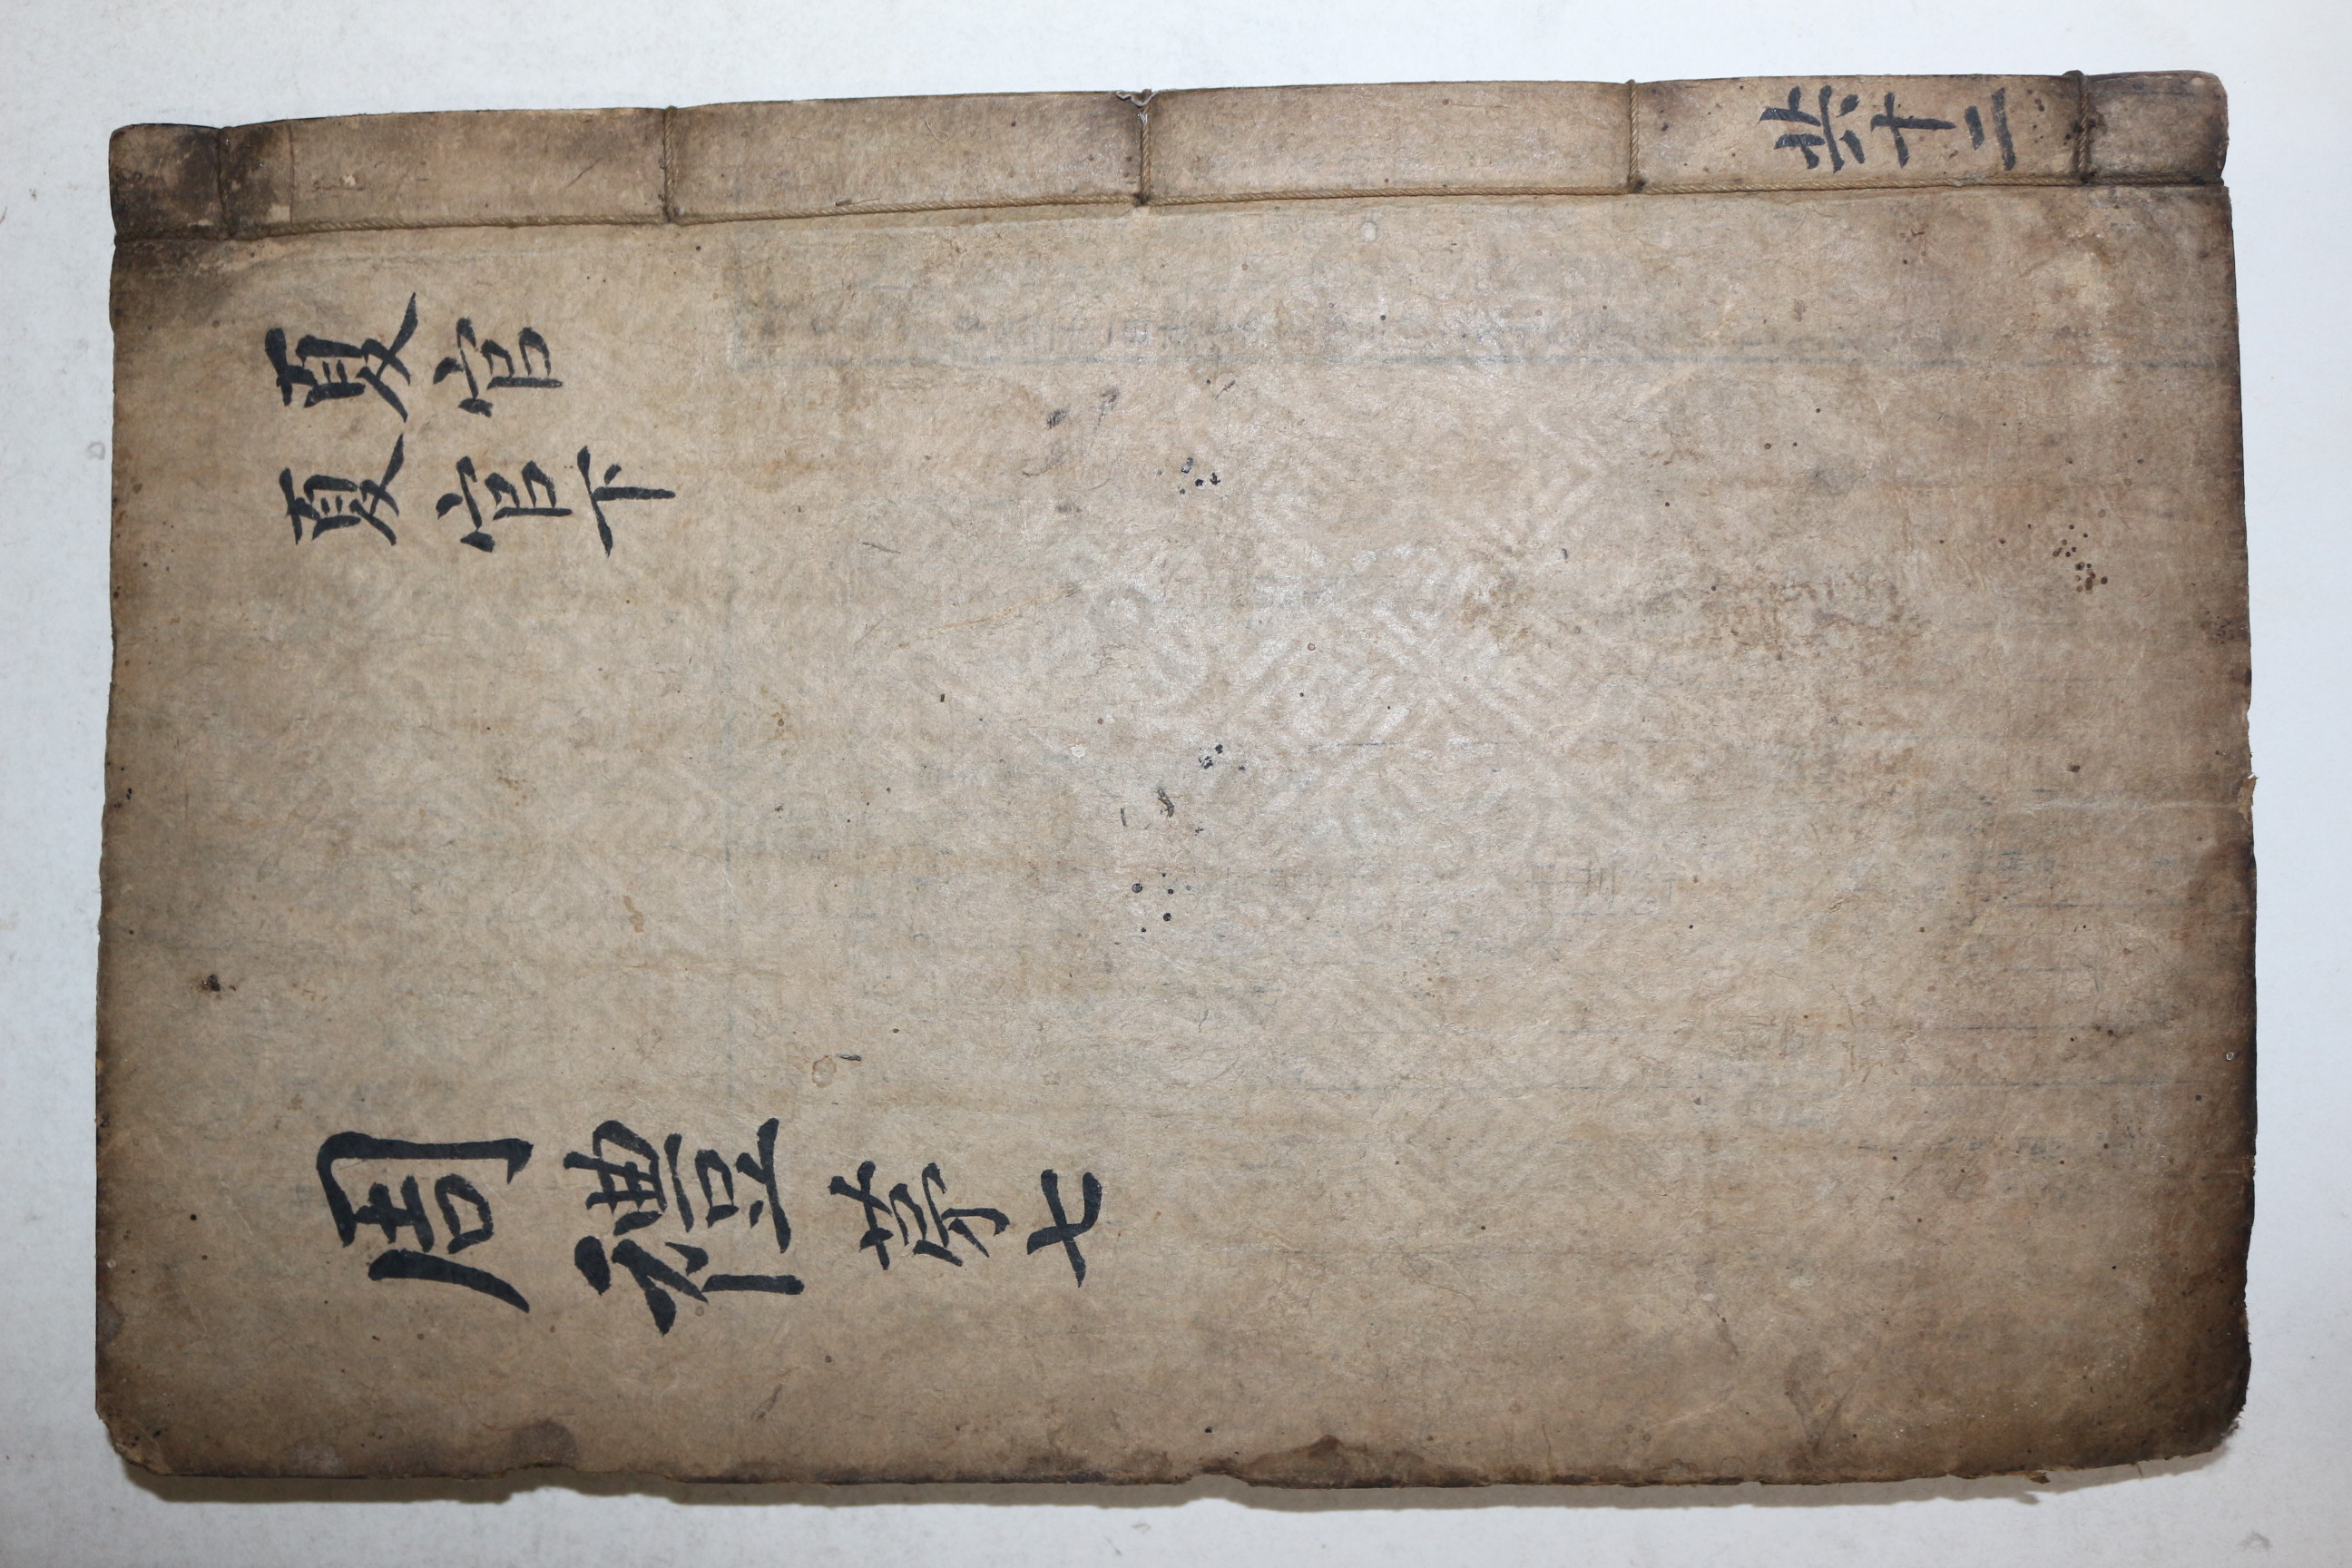 共十二
夏官
夏官下
周禮苐七